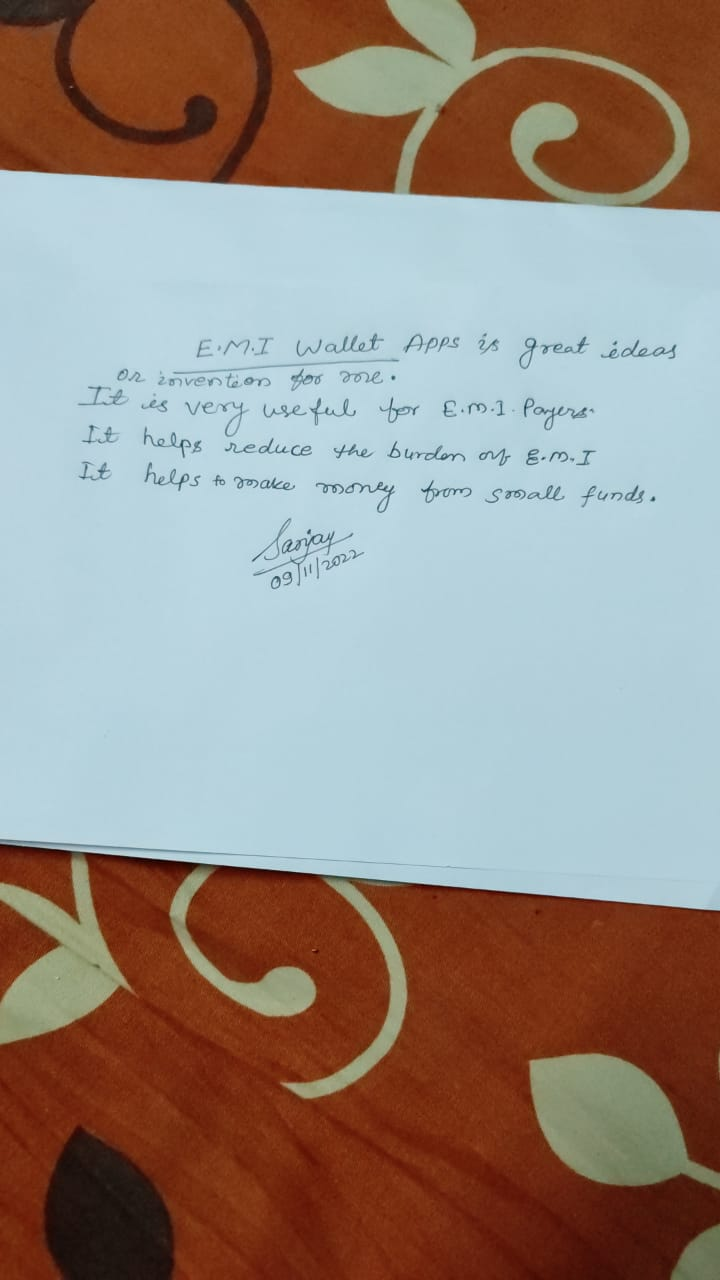 E.M.I Wallet Apps is great ideas
or invention for me.
It is very useful for E.M.I. Payers.
It helps reduce the burden of E.M.I
It helps to make money from small funds.
Sanjay
09/11/2022